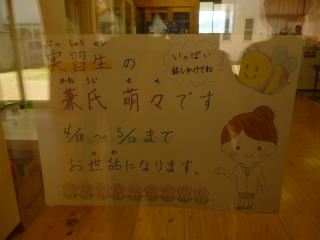 じっしゅうせい
実習生 の
いっぱい
話しかけてね
かね うじ
兼氏 萌々です
4/18 ～ 5/12 まで
せわ
お世話になります。